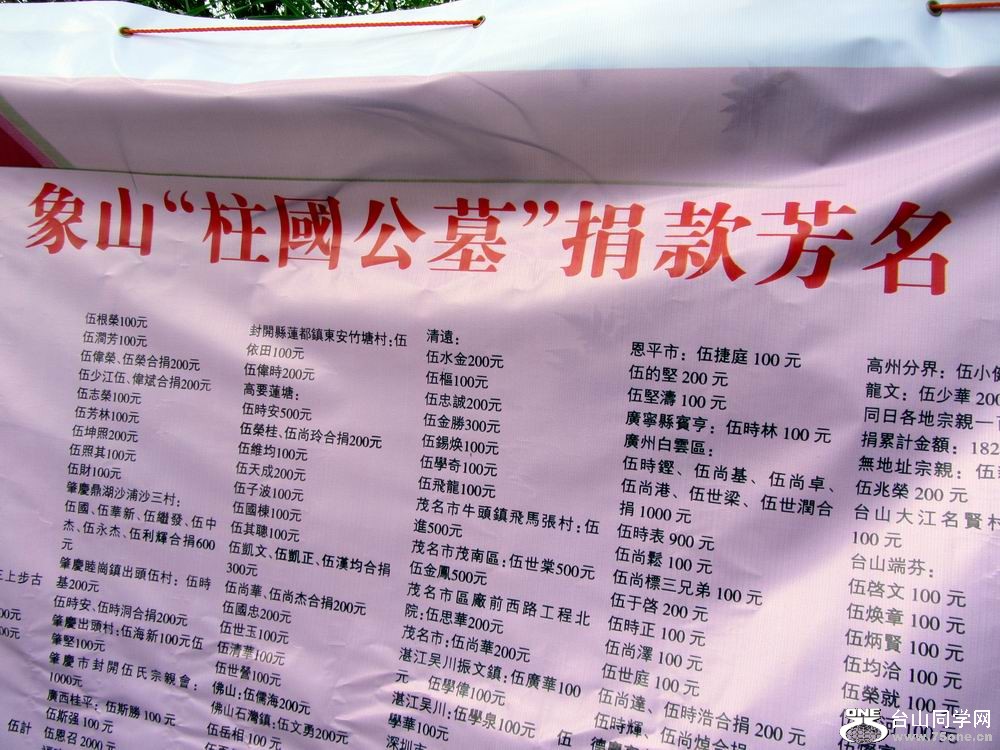 象山“柱國公墓”捐款芳名
上步古
00元
00元
伍計
伍根榮100元
伍潤芳100元
伍偉榮、伍榮合捐200元
伍少江伍、偉斌合捐200元
伍志榮100元
伍芳林100元
伍坤照200元
伍照其100元
伍財100元
肇慶鼎湖沙浦沙三村：
伍國、伍華新、伍繼發、伍中
杰、伍永杰、伍利輝合捐600
元
肇慶睦崗鎮出頭伍村：伍時
基200元
伍時安、伍時洞合捐200元
肇慶出頭村：伍海新100元伍
肇堅100元
肇慶市封開伍氏宗親會：
1000元
廣西桂平：伍斯勝100元
伍斯强 100元
伍恩召 2000元
封開縣蓮都鎮東安竹塘村：伍
依田100元
伍偉時200元
高要蓮塘：
伍時安500元
伍榮桂、伍尚玲合捐200元
伍維均100元
伍天成200元
伍子波100元
伍國棟100元
伍其聰100元
伍凱文、伍凱正、伍漢均合捐
300元
伍尚華、伍尚杰合捐200元
伍國忠200元
伍世玉100元
伍清華100元
伍世營100元
佛山：伍儒海200元
佛山石灣鎮：伍文勇200元
伍岳相 100元
清遠：
伍水金200元
伍樞100元
伍忠誠200元
伍金勝300元
伍錫焕100元
伍學奇100元
伍飛龍100元
茂名市牛頭鎮飛馬張村：伍
進500元
茂名市茂南區：伍世棠500元
伍金鳳500元
茂名市區廠前西路工程北
院：伍思華200元
茂名市：伍尚華200元
湛江吴川振文鎮：伍廣華100
元 伍學偉100元
湛江吴川：伍學泉100元 伍
學華100元
深圳市
恩平市：伍捷庭 100 元
伍的堅 200 元
伍堅濤 100 元
廣寧縣賓亨：伍時林 100 元
廣州白雲區：
伍時鏗、伍尚基、伍尚卓、
伍尚港、伍世梁、伍世潤合
捐 1000 元
伍時表 900 元
伍尚鬆 100 元
伍尚標三兄弟 100 元
伍于啓 200 元
伍時正 100 元
伍尚澤 100 元
伍世庭 100 元
伍尚達、伍時浩合捐 200 元
伍時輝、伍尚焯合捐
高州分界：伍小
龍文：伍少華 200
同日各地宗親一
捐累計金額：182
無地址宗親：伍
伍兆榮 200 元
台山大江名賢村
100 元
台山端芬：
伍啓文 100 元
伍焕章 100 元
伍炳賢 100 元
伍均洽 100 元
伍榮就 100 元
100元
ONE 台山同学网
www.75one.cn